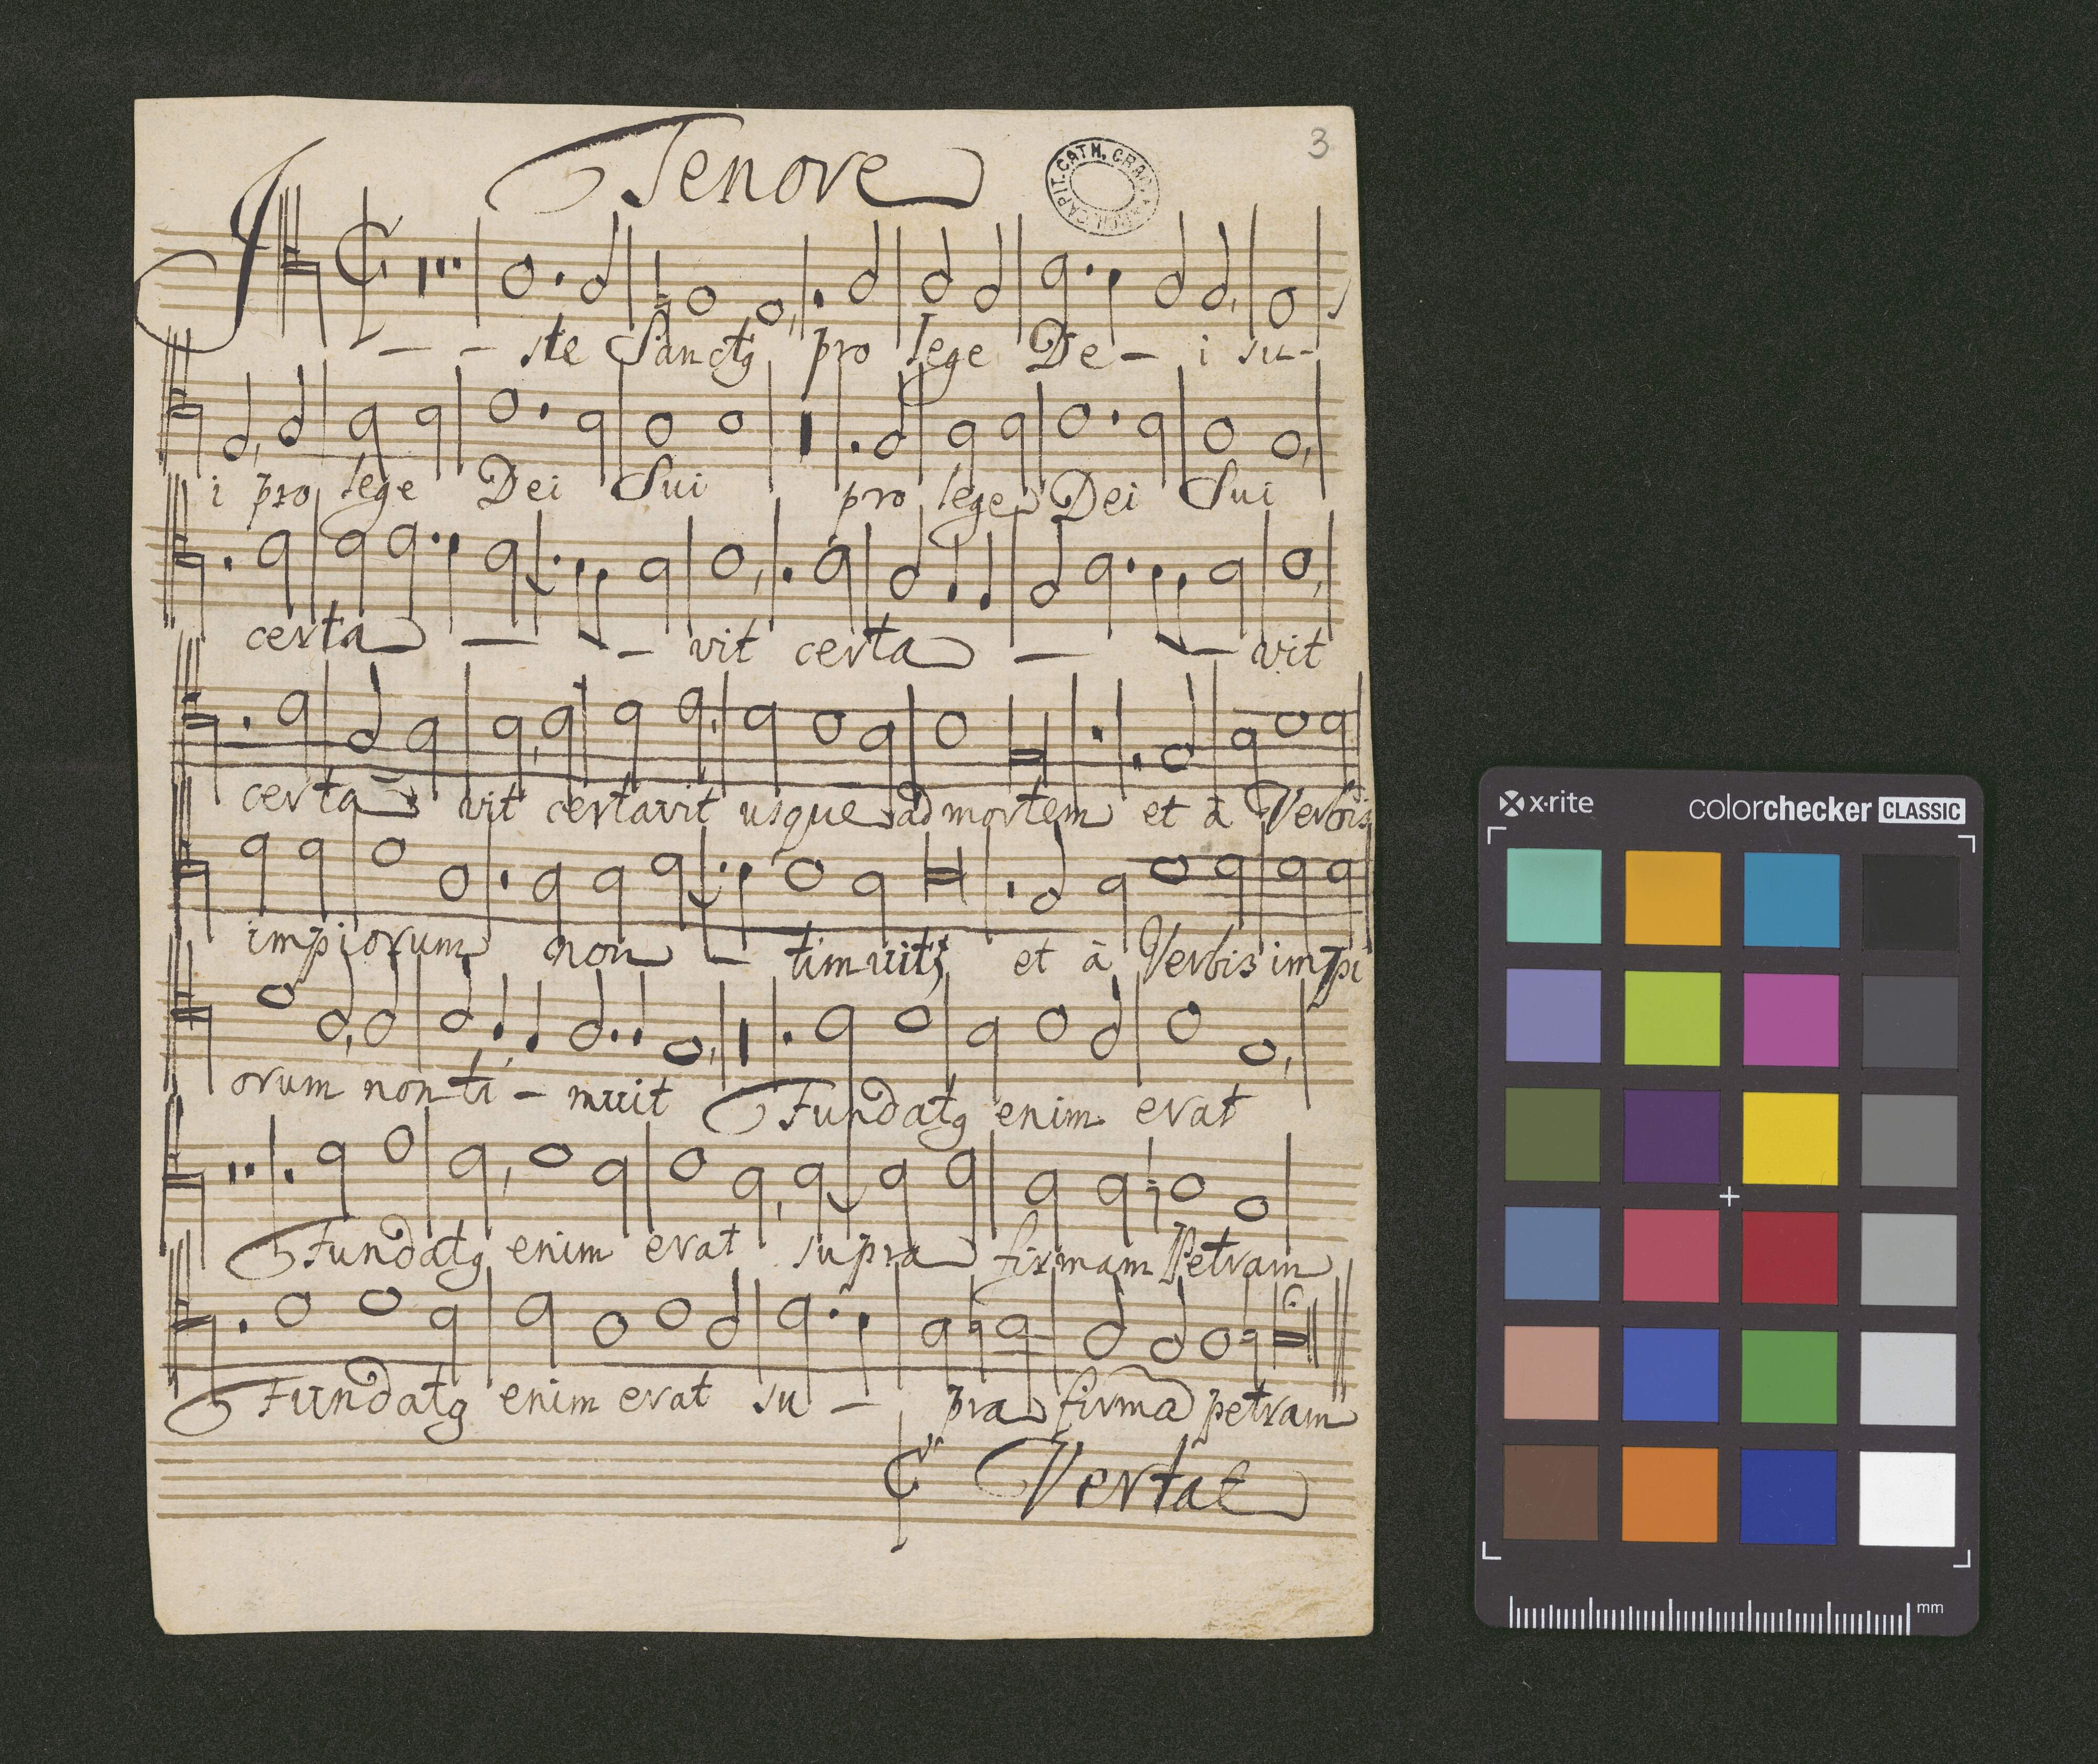 Tenore
3
I - - ste Sanctꝰ pro lege De - i su -
i pro lege Dei Sui pro lege Dei Sui
certa - - vit certa - - vit
certa - vit certavit usque ad mortem et à Verbis
impiorum non - timuit et à Verbis impi
orum non ti - muit Fundatꝰ enim erat
Fundatꝰ enim erat supra firmam Petram
Fundatꝰ enim erat su - pra firmā petram
Vertat
x·rite colorchecker CLASSIC
mm